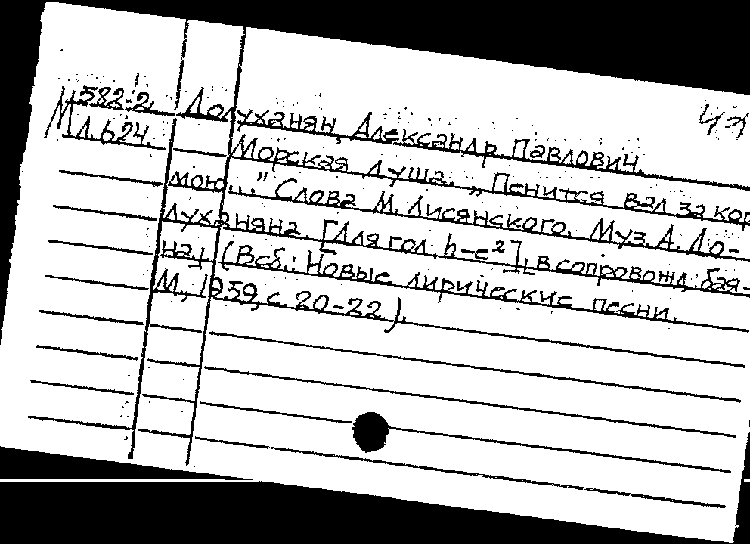 М582-2. Долуханян, Александр Павлович.
МЛ.624. Морская душа. „Пенится вал за кор
мою..." Слова М. Лисянского. Муз. А. До-
луханяна. [Для гол. h-c²], в сопровожд. бая-
на]. (В сб.: Новые лирические песни.
М., 1959, с. 20-22).